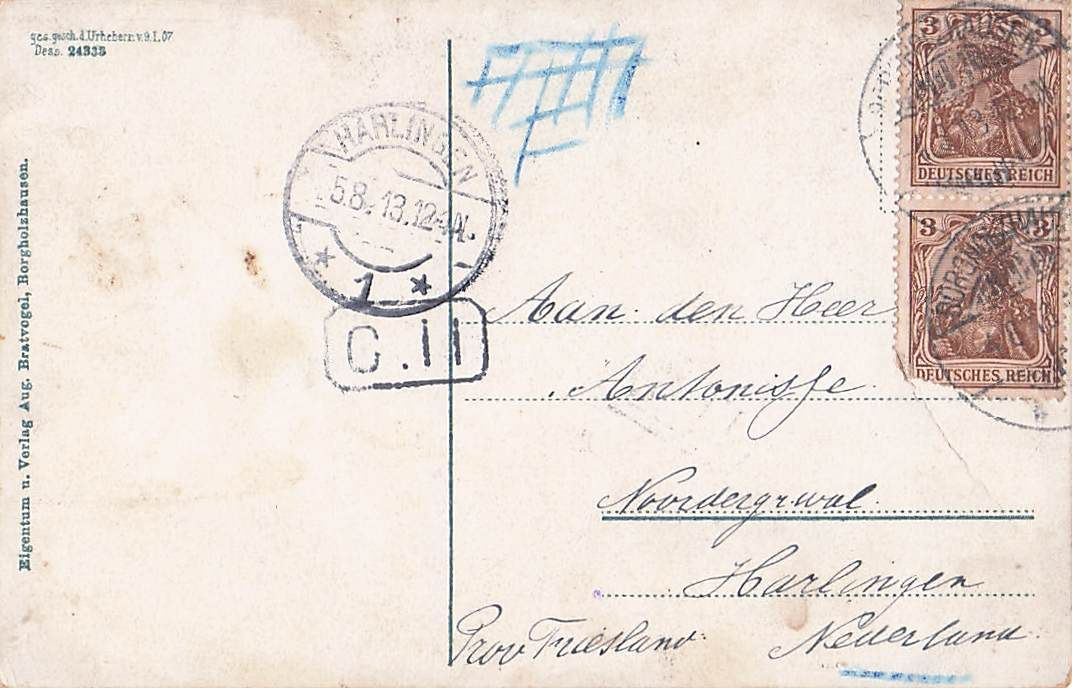 ges. gesch. d. Urheberr. v. 9. I. 07
Desp. 24335
Eigentum u. Verlag Aug. Bratvogel, Borgholzhausen.
HARLINGEN
5.8.13.12
1
C.11
3 3
DEUTSCHES REICH
3 3
DEUTSCHES REICH
Aan den Heer
Antonisse
Noordergrwal
Harlingen
Prov Friesland Nederland